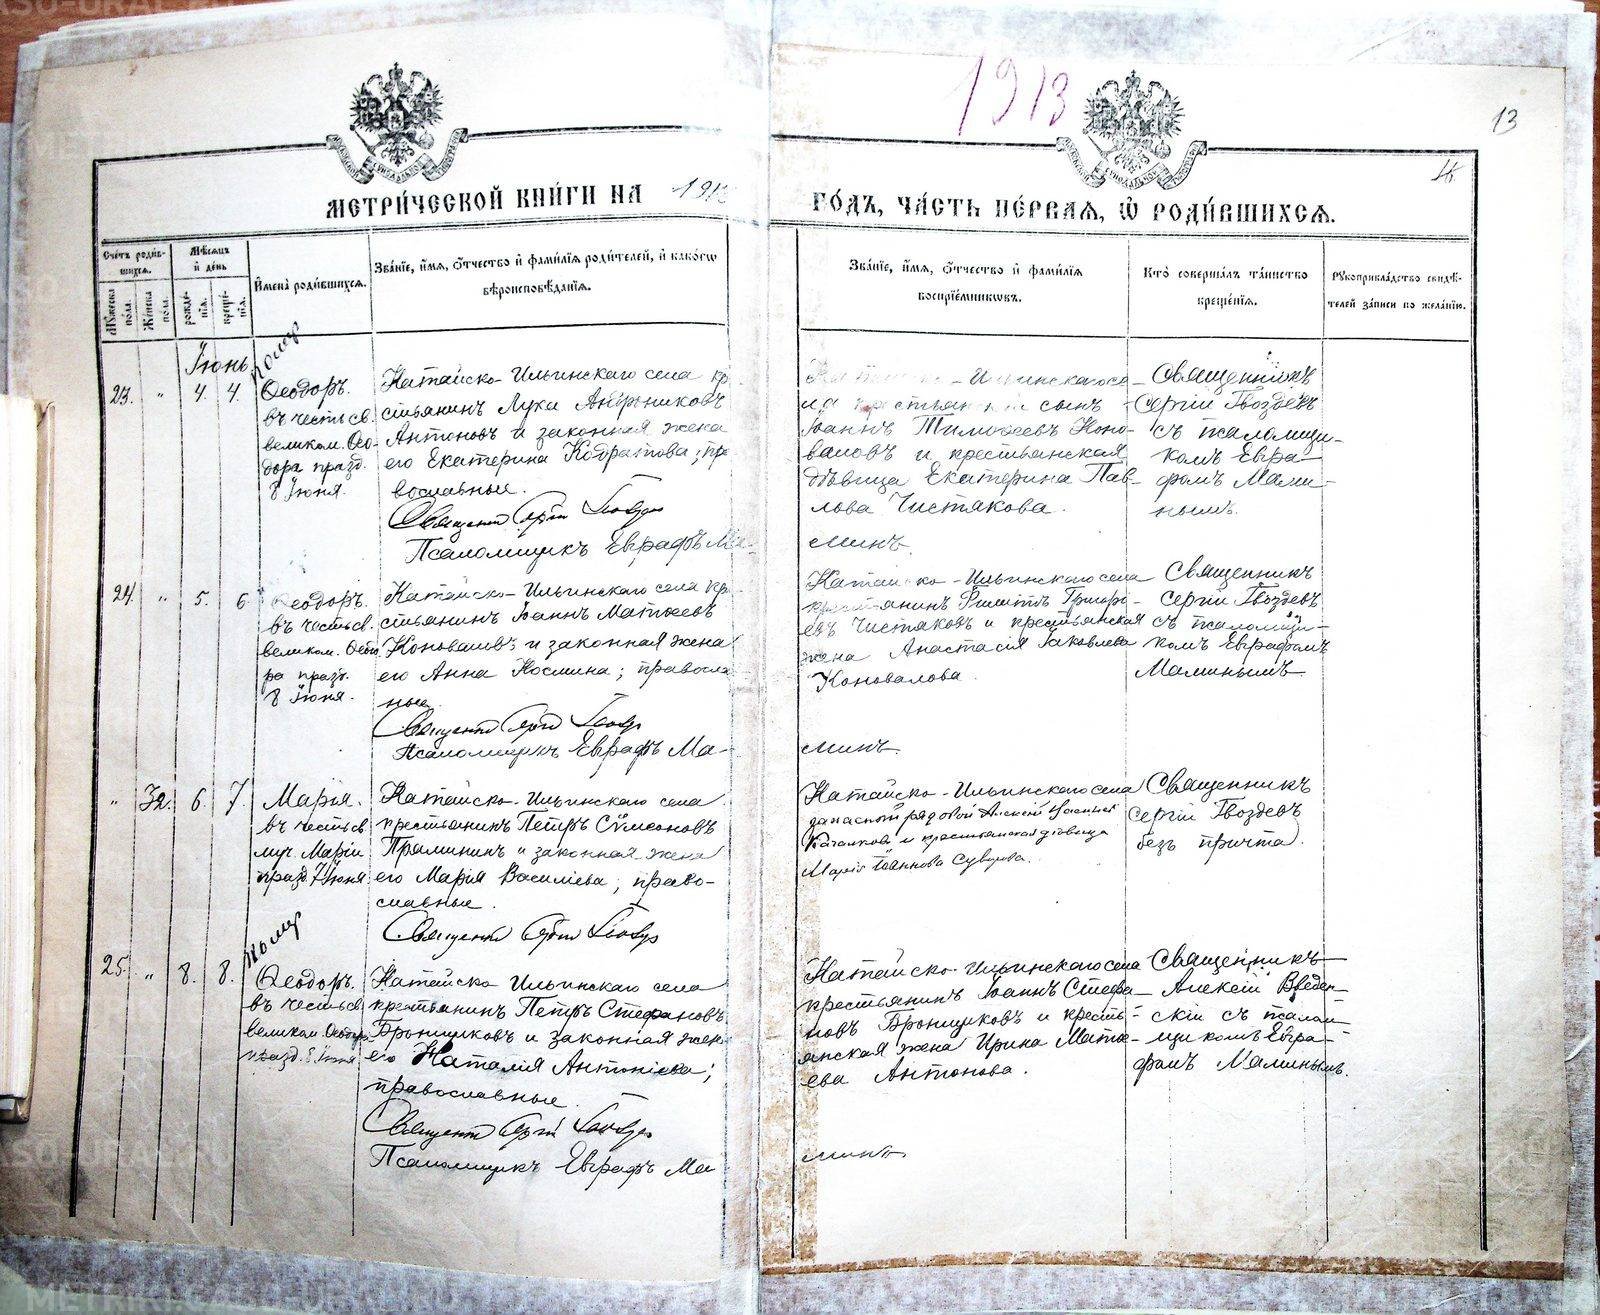 1913
13
МЕТРИ́ЧЕСКОЙ КНИ́ГИ НА 191
ГО́ДЪ, ЧА́СТЬ ПЕ́РВАЯ, Ѡ҆ РОДИ́ВШИХСЯ.
Сче́тъ роди́вшихся.
Му́жеска по́ла.
Же́нска по́ла.
Мѣ́сяцъ и҆ де́нь
рожде́нія.
креще́нія.
И҆мена̀ роди́вшихся.
Зва́ніе, и҆́мя, ѻ҆́тчество и҆ фами́лія роди́телей, и҆ како́гѡ
вѣроисповѣ́данія.
Зва́ніе, и҆́мя, ѻ҆́тчество и҆ фами́лія
воспрїе́мниковъ.
Кто̀ соверша́лъ та́инство
креще́нія.
Рукоприкла́дство свидѣ́-
телей за́писи по жела́нію.
Іюнь
23. " 4. 4.
Ѳеодоръ.
въ честь св.
великом. Ѳео-
дора празд.
8 Іюня.
Катайско-Ильинскаго села кр
стьянинъ Лука Андрониковъ
Антоновъ и законная жена
его Екатерина Кодратова; пра
вославные.
Священникъ Сергій Гвоздевъ
Псаломщикъ Евграфъ Ма-
сынъ
Іоаннъ Тимоѳеевъ Коно-
валовъ и крестьянская
дѣвица Екатерина Пав-
лова Чистякова.
минъ
Священникъ
Сергій Гвоздевъ
съ псаломщи-
комъ Евгра-
фомъ Мами-
нымъ.
24. " 5. 6
Ѳеодоръ.
въ честь св.
великом. Ѳеод
ра празд.
8 Іюня.
Катайско-Ильинскаго села кре
стьянинъ Іоаннъ Матѳеевъ
Коноваловъ и законная жена
его Анна Космина; правосла
ные.
Священникъ Сергій Гвоздевъ
Псаломщикъ Евграфъ Ма-
Катайско-Ильинскаго села
крестьянинъ Филиппъ Григорі-
евъ Чистяковъ и крестьянская
жена Анастасія Іаковлева
Коновалова.
минъ.
Священникъ
Сергій Гвоздевъ
съ псаломщи-
комъ Евграфомъ
Маминымъ
" 32. 6. 7.
Марія.
въ честь св
муч. Маріи
празд 7 Іюня
Катайско-Ильинскаго села
крестьянинъ Петръ Сѵмеоновъ
Праминъ и законная жена
его Марія Василіева; право-
славные.
Священникъ Сергій Гвоздевъ
Катайско-Ильинскаго села
запасный рядовой Алексій
и крестьянская дѣвица
Марія Іоаннова Суворова.
Священникъ
Сергій Гвоздевъ
безъ причта.
25. " 8. 8.
Ѳеодоръ.
въ честь св
великом. Ѳеодора
празд. 8 Іюня
Катайско Ильинскаго села
крестьянинъ Петръ Стефановъ
Бронщиковъ и законная жен
его Наталія Антоніева;
православные.
Священникъ Сергій Гвоздевъ
Псаломщикъ Евграфъ Ма
Катайско-Ильинскаго села
крестьянинъ Іоаннъ Стефа-
новъ Бронщиковъ и кресть-
янская жена Ирина Матѳ-
ева Антонова.
минъ
Священникъ
Алексій Введен-
скій съ псалом-
щикомъ Евгра-
фомъ Маминымъ.